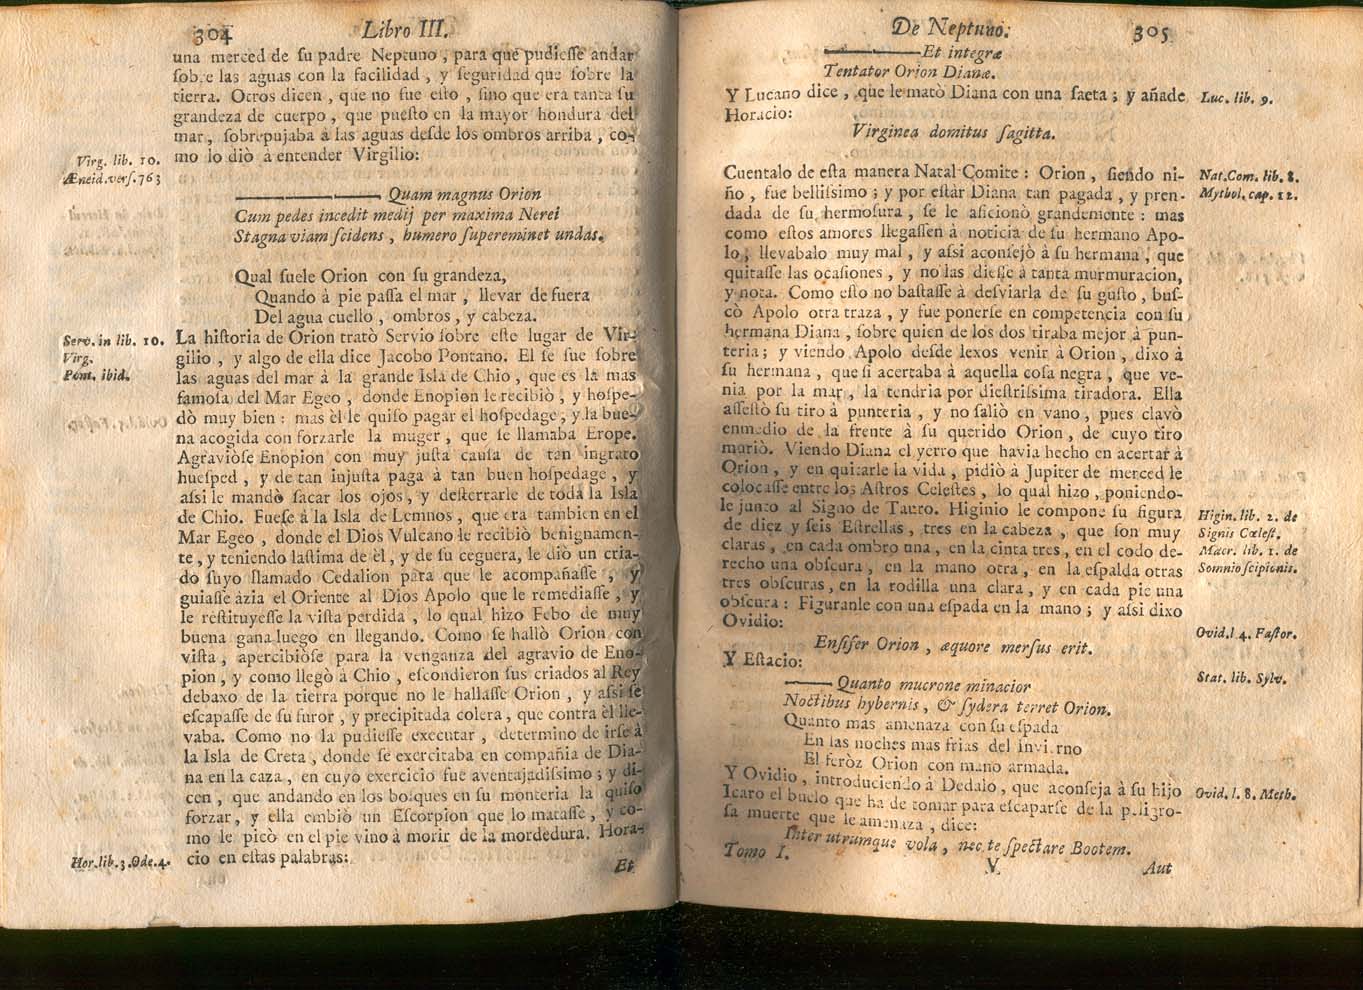 304 Libro III.
una merced de su padre Neptuno, para que pudiesse andar
sobre las aguas con la facilidad, y seguridad que sobre la
tierra. Otros dicen, que no fue esto, sino que era tanta su
grandeza de cuerpo, que puesto en la mayor hondura del
mar, sobrepujaba à las aguas desde los ombros arriba, co-
mo lo diò à entender Virgilio:
Virg. lib. 10.
Æneid. vers. 763
Quam magnus Orion
Cum pedes incedit medij per maxima Nerei
Stagna viam scidens, humero supereminet undas.
Qual suele Orion con su grandeza,
Quando à pie passa el mar, llevar de fuera
Del agua cuello, ombros, y cabeza.
La historia de Orion tratò Servio sobre este lugar de Vir-
gilio, y algo de ella dice Jacobo Pontano. El se fue sobre
las aguas del mar à la grande Isla de Chio, que es la mas
famosa del Mar Egeo, donde Enopion le recibiò, y hospe-
dò muy bien: mas èl le quiso pagar el hospedage, y la bue-
na acogida con forzarle la muger, que se llamaba Erope.
Agraviòse Enopion con muy justa causa de tan ingrato
huesped, y de tan injusta paga à tan buen hospedage, y
assi le mandò sacar los ojos, y desterrarle de toda la Isla
de Chio. Fuese à la Isla de Lemnos, que era tambien en el
Mar Egeo, donde el Dios Vulcano le recibiò benignamen-
te, y teniendo lastima de èl, y de su ceguera, le diò un cria-
do suyo llamado Cedalion para que le acompañasse, y
guiasse àzia el Oriente al Dios Apolo que le remediasse, y
le restituyesse la vista perdida, lo qual hizo Febo de muy
buena gana luego en llegando. Como se hallò Orion con
vista, apercibiòse para la venganza del agravio de Eno-
pion, y como llegò à Chio, escondieron sus criados al Rey
debaxo de la tierra porque no le hallasse Orion, y assi se
escapasse de su furor, y precipitada colera, que contra èl lle-
vaba. Como no la pudiesse executar, determino de irse à
la Isla de Creta, donde se exercitaba en compañia de Dia-
na en la caza, en cuyo exercicio fue aventajadissimo; y di-
cen, que andando en los bosques en su monteria la quiso
forzar, y ella embiò un Escorpion que lo matasse, y co-
mo le picò en el pie vino à morir de la mordedura. Hora-
cio en estas palabras:
Serv. in lib. 10.
Virg.
Pont. ibid.
Hor. lib. 3. Ode. 4.
Et
De Neptuno. 305
Et integræ
Tentator Orion Dianæ.
Y Lucano dice, que le matò Diana con una saeta; y añade
Horacio:
Luc. lib. 9.
Virginea domitus sagitta.
Cuentalo de esta manera Natal Comite: Orion, siendo ni-
ño, fue bellissimo; y por estàr Diana tan pagada, y pren-
dada de su hermosura, se le aficionò grandemente: mas
como estos amores llegassen à noticia de su hermano Apo-
lo, llevabalo muy mal, y assi aconsejò à su hermana, que
quitasse las ocasiones, y no las diesse à tanta murmuracion,
y nota. Como esto no bastasse à desviarla de su gusto, bus-
cò Apolo otra traza, y fue ponerse en competencia con su
hermana Diana, sobre quien de los dos tiraba mejor à pun-
teria; y viendo Apolo desde lexos venir à Orion, dixo à
su hermana, que si acertaba à aquella cosa negra, que ve-
nia por la mar, la tendria por diestrissima tiradora. Ella
assestò su tiro à punteria, y no saliò en vano, pues clavò
enmedio de la frente à su querido Orion, de cuyo tiro
muriò. Viendo Diana el yerro que havia hecho en acertar à
Orion, y en quitarle la vida, pidiò à Jupiter de merced le
colocasse entre los Astros Celestes, lo qual hizo, poniendo-
le junto al Signo de Tauro. Higinio le compone su figura
de diez y seis Estrellas, tres en la cabeza, que son muy
claras, en cada ombro una, en la cinta tres, en el codo de-
recho una obscura, en la mano otra, en la espalda otras
tres obscuras, en la rodilla una clara, y en cada pie una
obscura: Figuranle con una espada en la mano; y assi dixo
Ovidio:
Nat. Com. lib. 8.
Mythol. cap. 12.
Higin. lib. 2. de
Signis Cœlest.
Macr. lib. 1. de
Somnio scipionis.
Ensifer Orion, æquore mersus erit.
Ovid. l 4. Fastor.
Y Estacio:
Stat. lib. Sylv.
Quanto mucrone minacior
Noctibus hybernis, & sydera terret Orion.
Quanto mas amenaza con su espada
En las noches mas frias del invierno
El feròz Orion con mano armada.
Y Ovidio, introduciendo à Dedalo, que aconseja à su hijo
Icaro el buelo que ha de tomar para escaparse de la peligro-
sa muerte que le amenaza, dice:
Ovid. l. 8. Meth.
Inter utrumque vola, nec te spectare Bootem.
Tomo I. V Aut